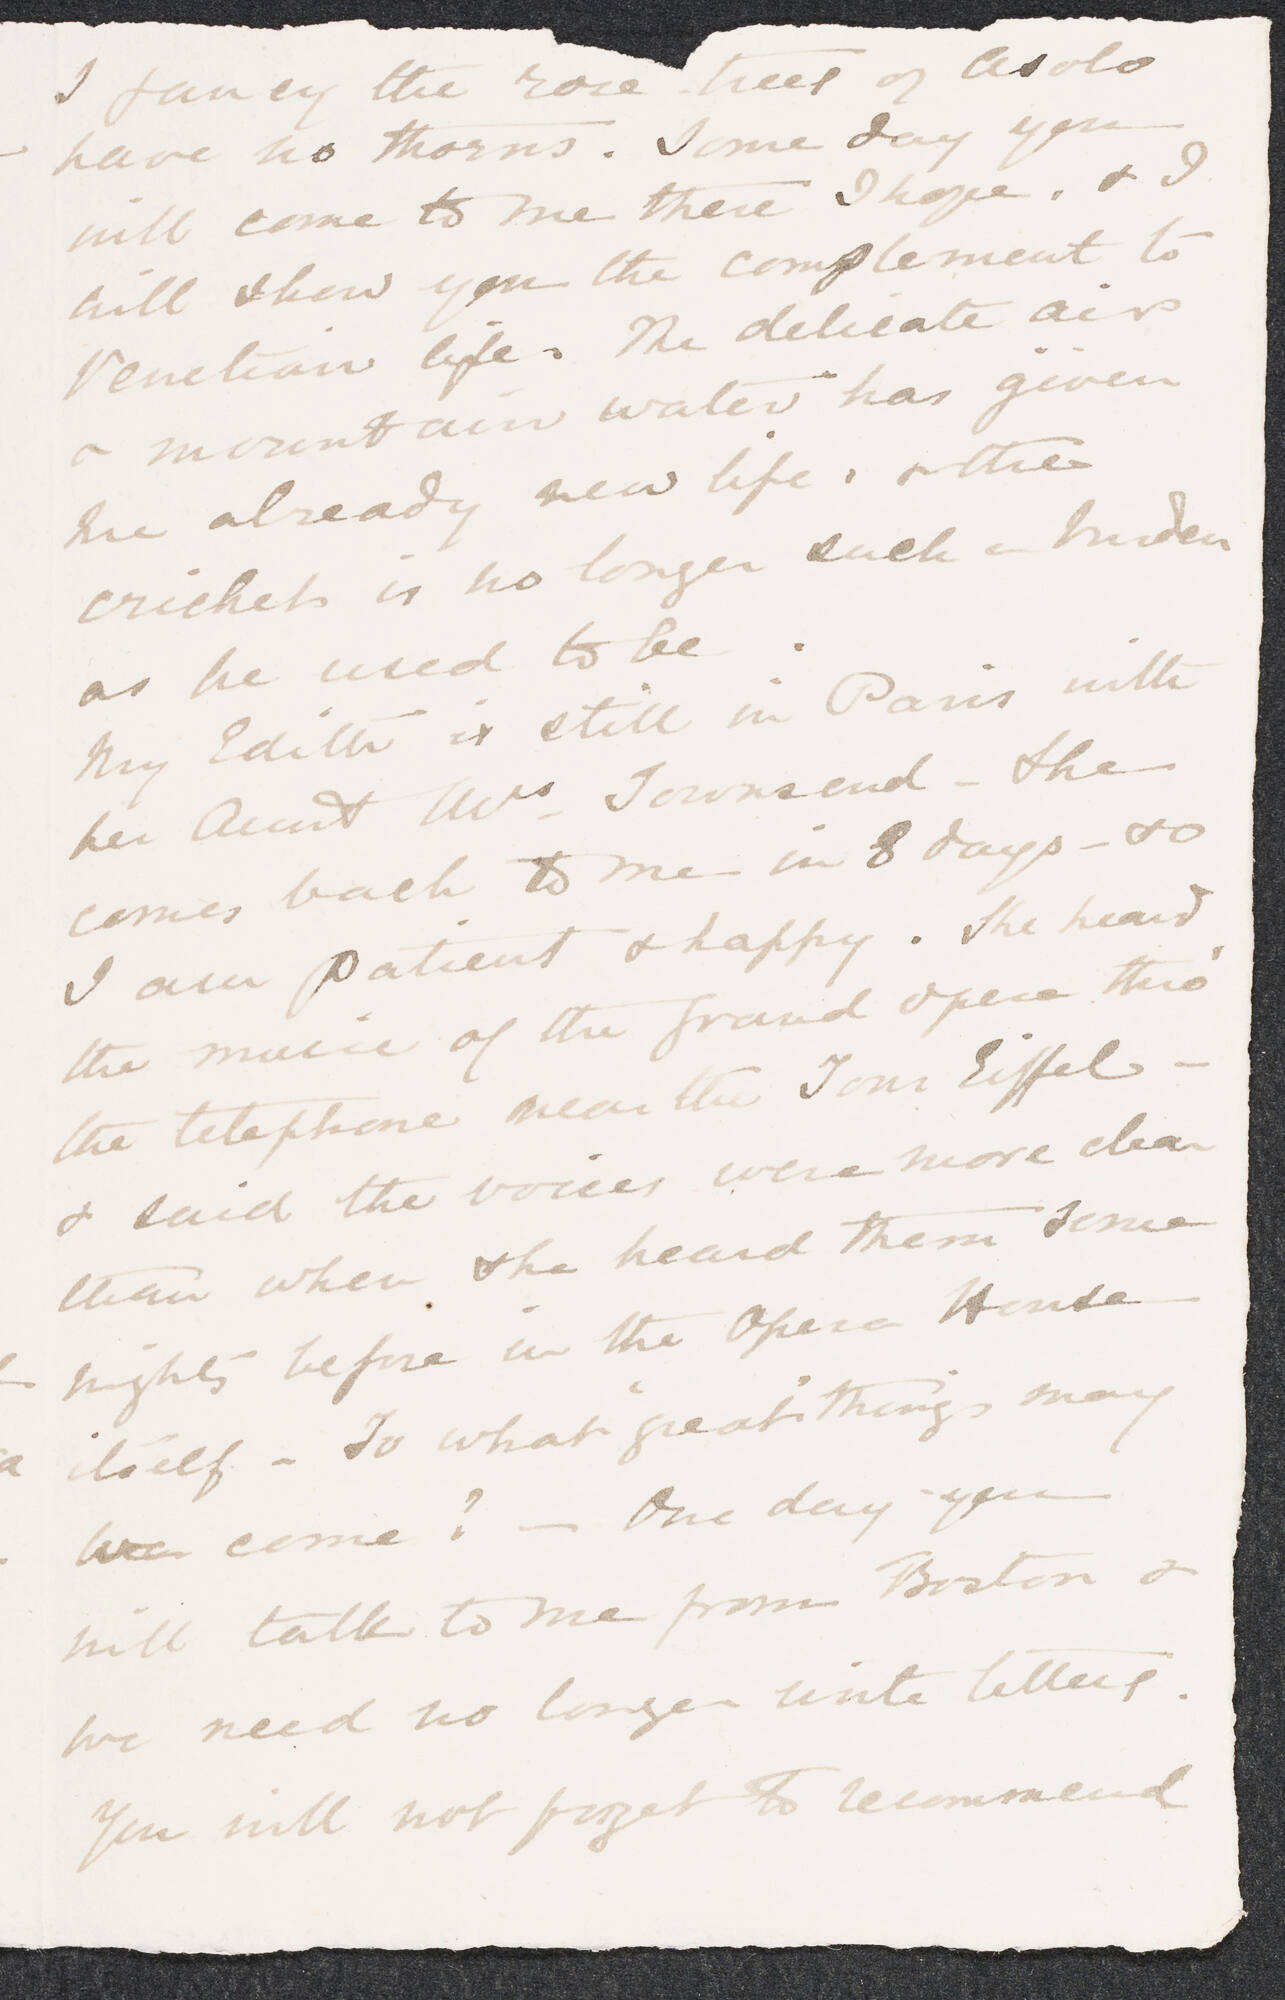 I fancy the rose-trees of Asolo
have no thorns. Some day you
will come to me there I hope. & I
will show you the complement to
Venetian life. The delicate air
& mountain water has given
me already new life. & the
crickets is no longer such a burden
as he used to be.
My Edith is still in Paris with
her Aunt Mrs. Townsend - She
comes back to me in 8 days - so
I am patient & happy. She heard
the music of the grand opera thro'
the telephone near the Tour Eiffel -
& said the voices were more clear
than when she heard them some
nights before in the Opera House
itself - To what "great" things may
we come? - One day you
will talk to me from Boston &
we need no longer write letters.
You will not forget to recommend